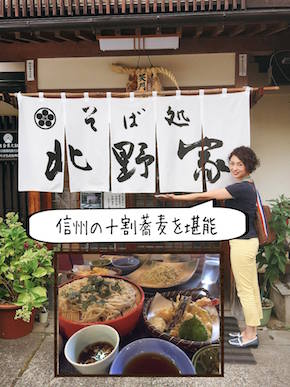 そば処
北野家
信州の十割蕎麦を堪能